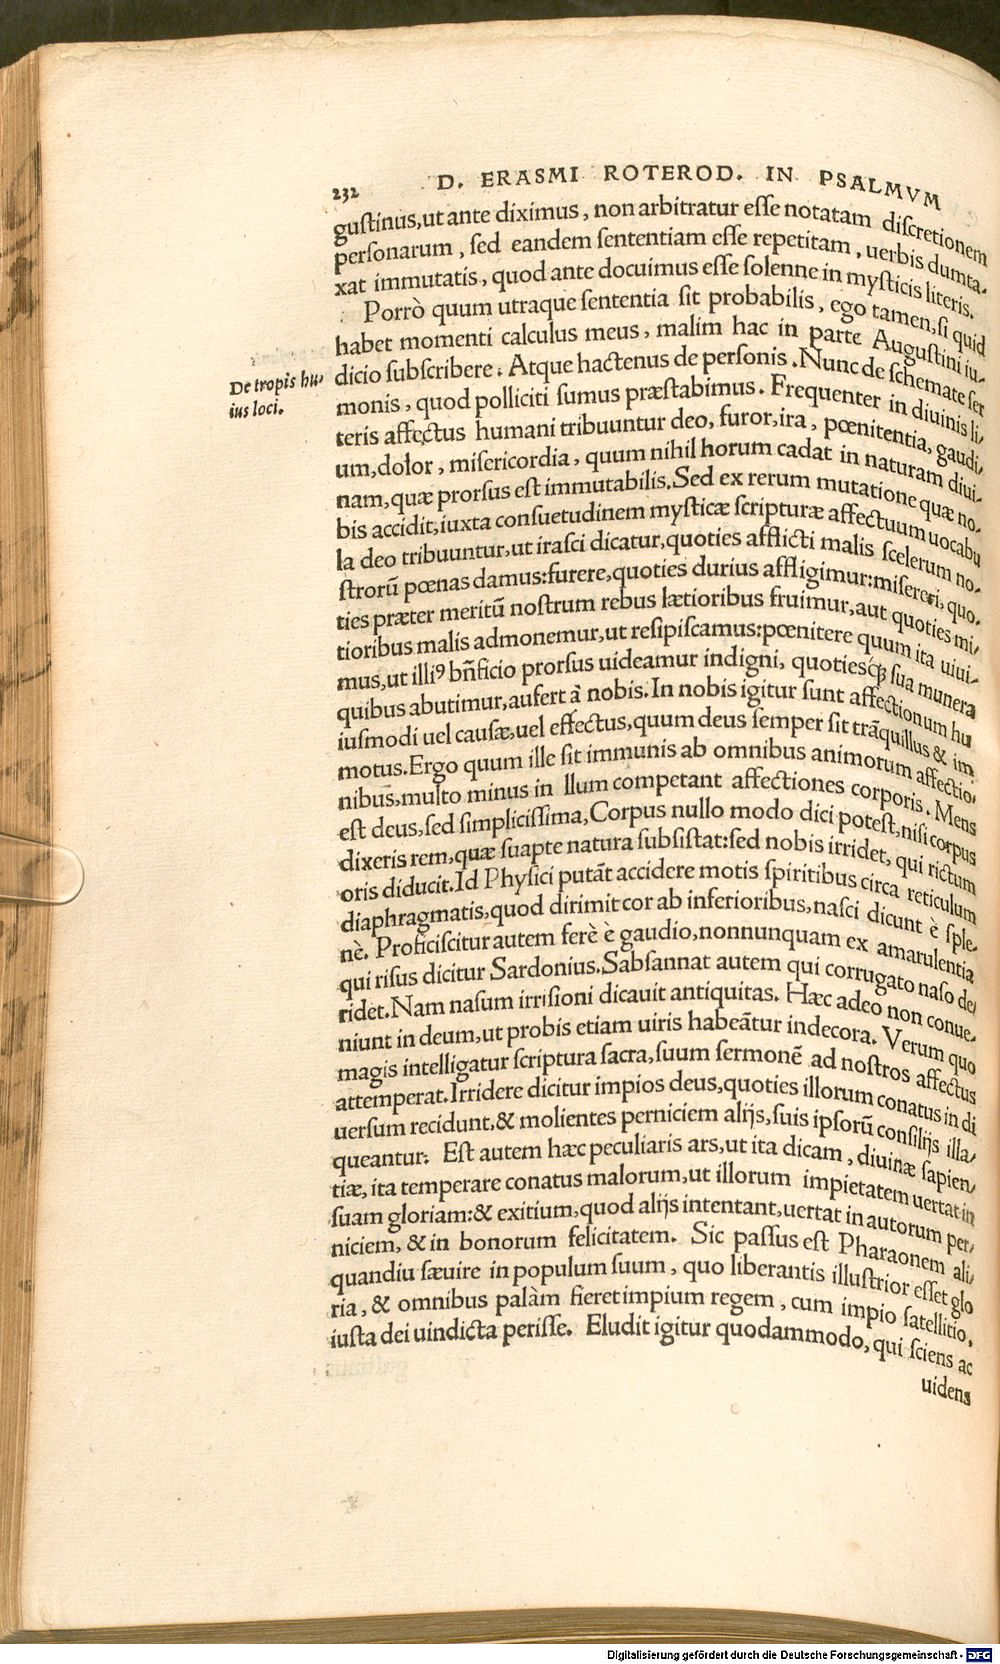 232 D. ERASMI ROTEROD. IN PSALMVM
gustinus, ut ante diximus, non arbitratur esse notatam discretionem
personarum, sed eandem sententiam esse repetitam, uerbis dumta-
xat immutatis, quod ante docuimus esse solenne in mysticis literis.
Porrò quum utraque sententia sit probabilis, ego tamen, si quid
habet momenti calculus meus, malim hac in parte Augustini iu-
dicio subscribere. Atque hactenus de personis. Nunc de schemate ser
De tropis hu-
ius loci.
monis, quod polliciti sumus præstabimus. Frequenter in diuinis li-
teris affectus humani tribuuntur deo, furor, ira, pœnitentia, gaudi-
um, dolor, misericordia, quum nihil horum cadat in naturam diui-
nam, quæ prorsus est immutabilis. Sed ex rerum mutatione quæ no-
bis accidit, iuxta consuetudinem mysticæ scripturæ affectuum uocabu
la deo tribuuntur, ut irasci dicatur, quoties afflicti malis scelerum no-
strorū pœnas damus: furere, quoties durius affligimur: misereri, quo-
ties præter meritū nostrum rebus lætioribus fruimur, aut quoties mi-
tioribus malis admonemur, ut resipiscamus: pœnitere quum ita uiui-
mus, ut illiꝰ bñficio prorsus uideamur indigni, quotiesq́ꝫ sua munera
quibus abutimur, aufert à nobis. In nobis igitur sunt affectionum hu
iusmodi uel causæ, uel effectus, quum deus semper sit trāquillus & im
motus. Ergo quum ille sit immunis ab omnibus animorum affectio-
nibus, multo minus in llum competant affectiones corporis. Mens
est deus, sed simplicissima, Corpus nullo modo dici potest, nisi corpus
dixeris rem, quæ suapte natura subsistat: sed nobis irridet, qui rictum
oris diducit. Id Physici putāt accidere motis spiritibus circa reticulum
diaphragmatis, quod dirimit cor ab inferioribus, nasci dicunt è sple-
nè. Proficiscitur autem ferè è gaudio, nonnunquam ex amarulentia
qui risus dicitur Sardonius. Sabsannat autem qui corrugato naso de-
ridet. Nam nasum irrisioni dicauit antiquitas. Hæc adeo non conue-
niunt in deum, ut probis etiam uiris habeātur indecora. Verum quo
magis intelligatur scriptura sacra, suum sermonē ad nostros affectus
attemperat. Irridere dicitur impios deus, quoties illorum conatus in di
uersum recidunt, & molientes perniciem alijs, suis ipsorū consilijs illa-
queantur. Est autem hæc peculiaris ars, ut ita dicam, diuinæ sapien-
tiæ, ita temperare conatus malorum, ut illorum impietatem uertat in
suam gloriam: & exitium, quod alijs intentant, uertat in autorum per-
niciem, & in bonorum felicitatem. Sic passus est Pharaonem ali-
quandiu sæuire in populum suum, quo liberantis illustrior esset glo
ria, & omnibus palàm fieret impium regem, cum impio satellitio,
iusta dei uindicta perisse. Eludit igitur quodammodo, qui sciens ac
uidens
Digitalisierung gefördert durch die Deutsche Forschungsgemeinschaft - DFG